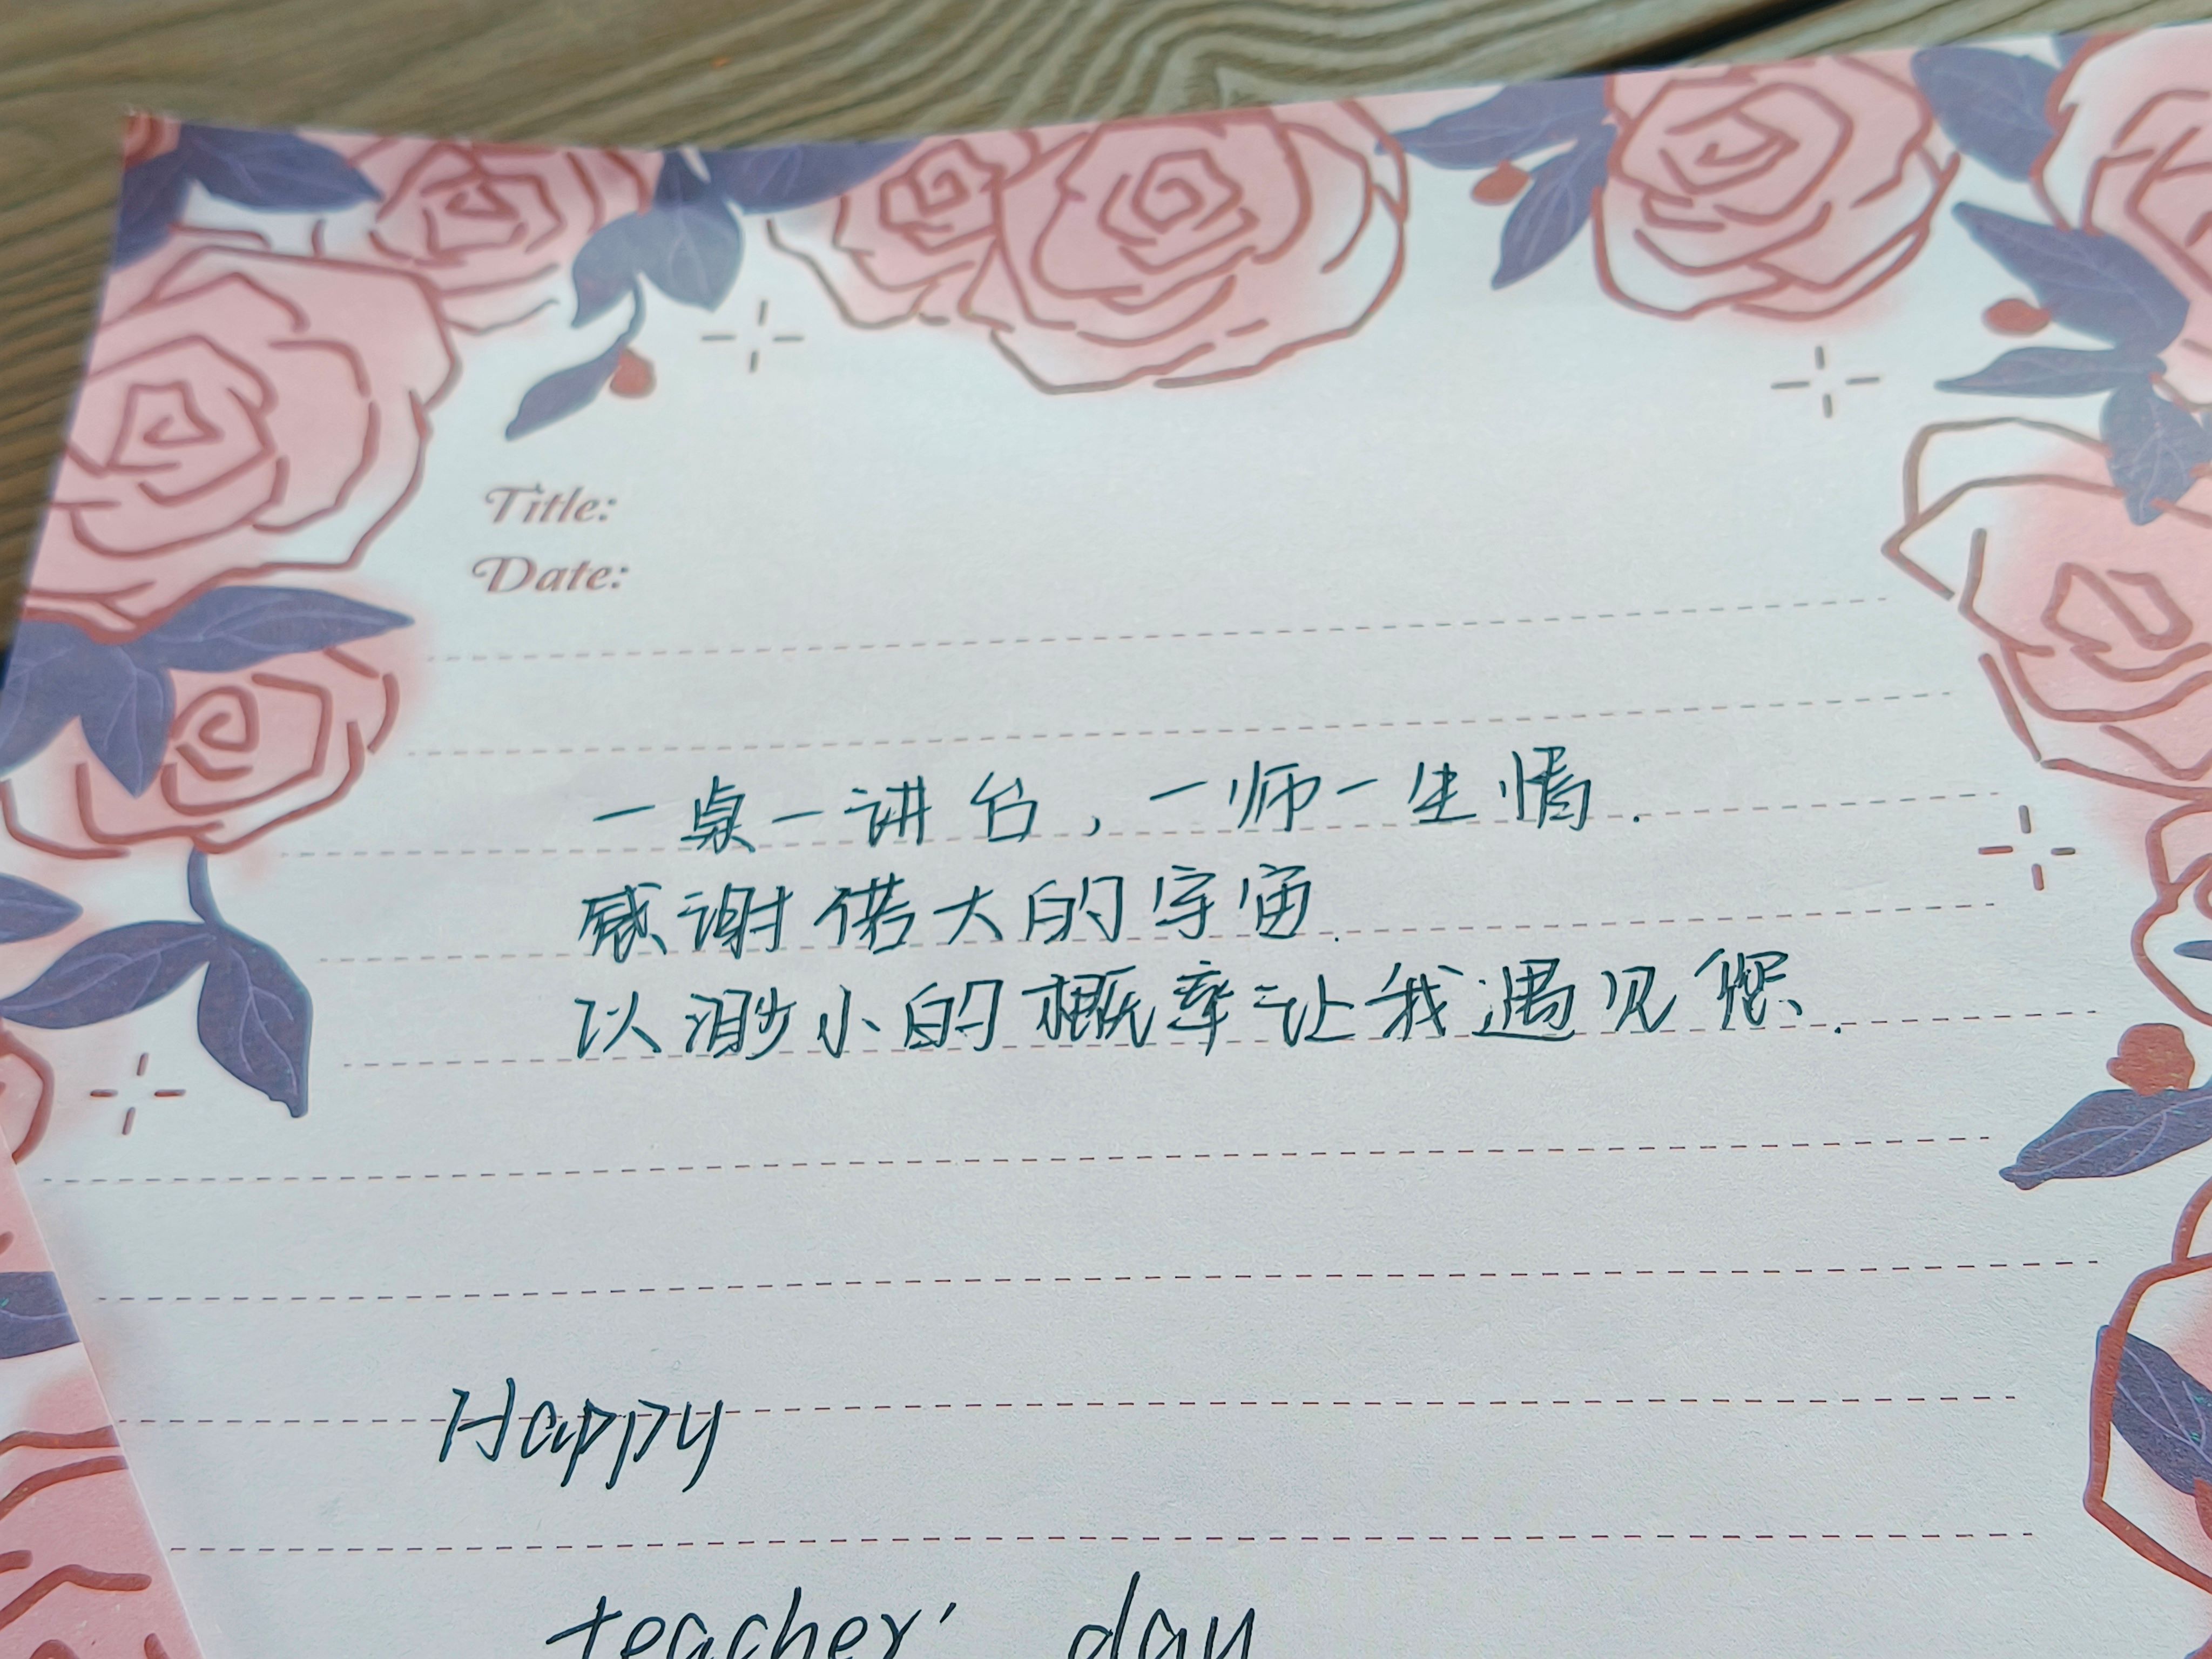 Title:
Date:
一桌一讲台，一师一生情.
感谢偌大的宇宙.
以渺小的概率让我遇见您.
Happy
teacher' day